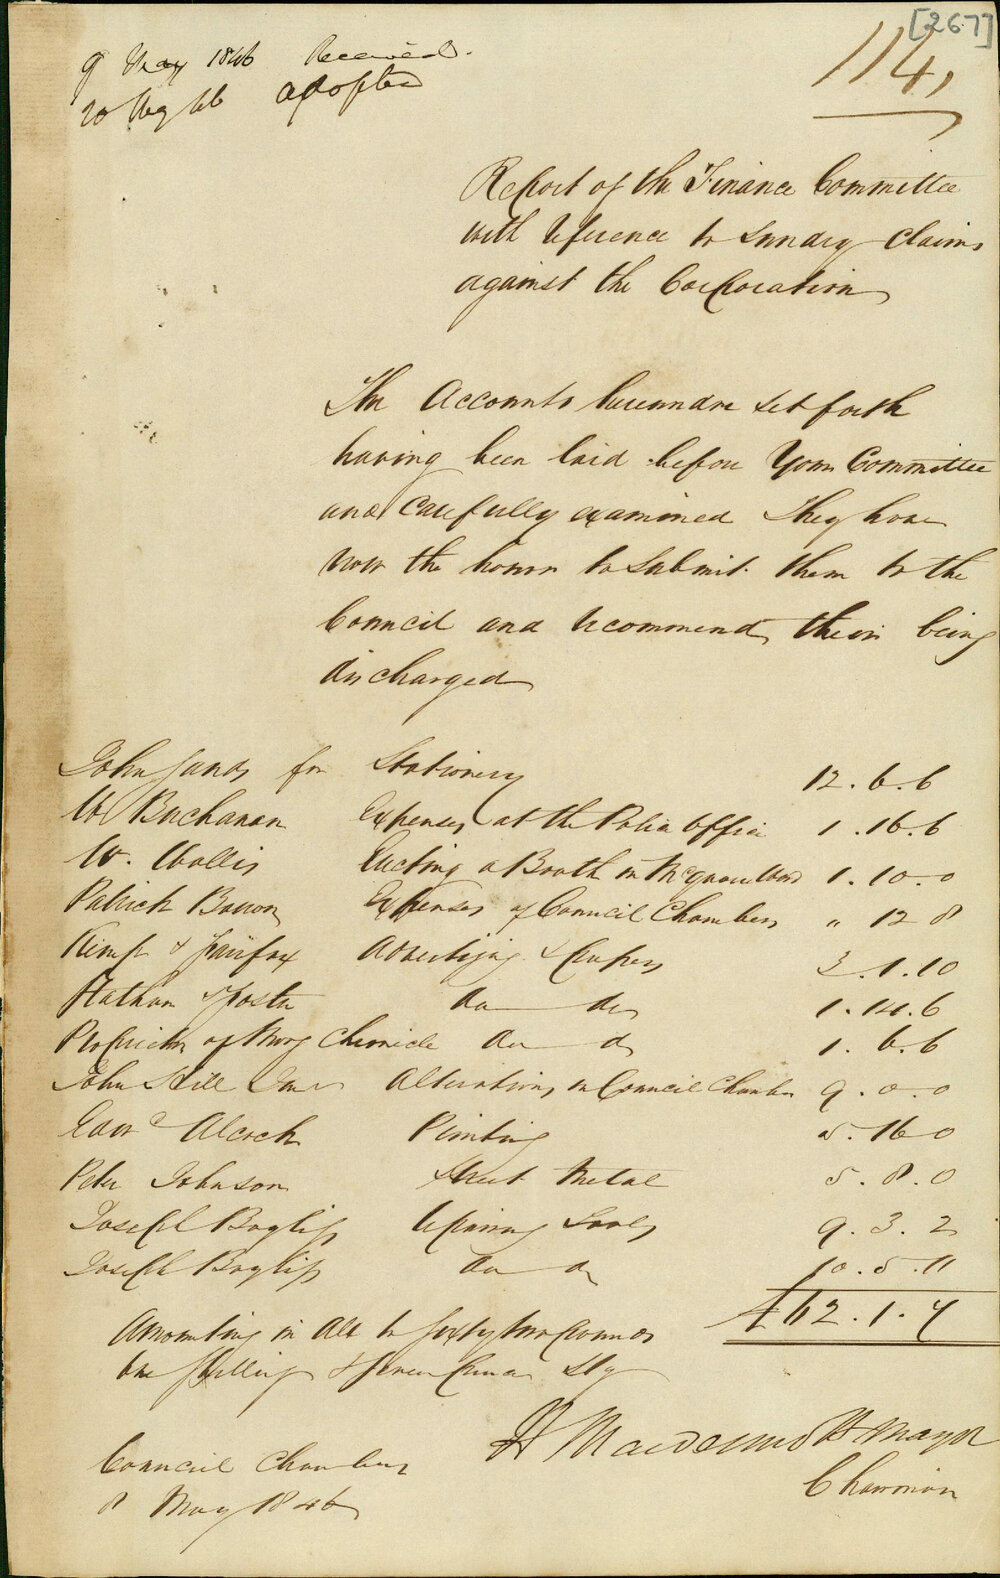 [267]
114,
9 May 1846 Received.
20 Aug 46 adopted
Report of the Finance Committee
with reference to Sundry claims
against the Corporation
The Accounts hereunder set forth
having been laid before Your Committee
and carefully examined They have
now the honor to submit them to the
Council and recommend their being
discharged
John Sands for Stationery 12.6.6
W Buchanan Expenses at the Police Office 1.16.6
W. Wallis Erecting a Booth in McQuarie Ward 1.10.0
Patrick Barron Expenses of Council Chambers " 12 8
Kemp & Fairfax Advertizing & Papers 3.1.10
Statham & Forster do do 1.14.6
Proprietor of Morg Chronicle do do 1.6.6
John Hill Alterations in Council Chamber 9.0.0
Edwd Alcock Printing 5.16 0
Peter Johnson Street Metal 5.8.0
Joseph Bayliss Repairing Tools 9.3.2
Joseph Bayliss do do 10.5.11
£62.1.7
Amounting in all to Sixty two Pounds
one Shilling & Seven Pence Stg
H Macdermott Mayor
Chairman
Council Chambers
8 May 1846